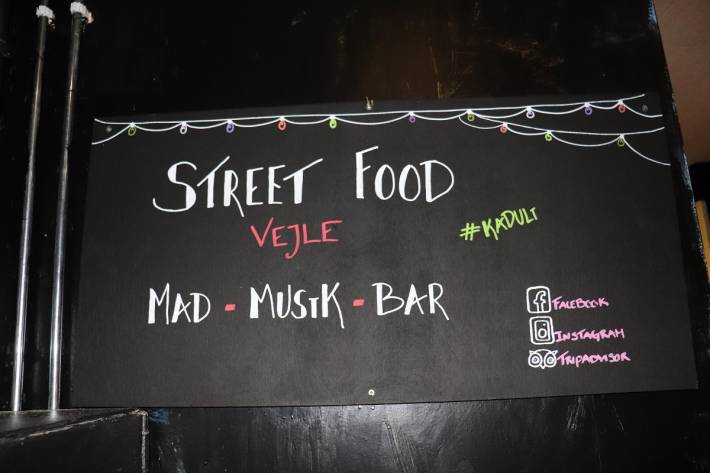 STREET FOOD
VEJLE
#KADULT
MAD - MUSIK - BAR
FACEBOOK
INSTAGRAM
TRIPADVISOR